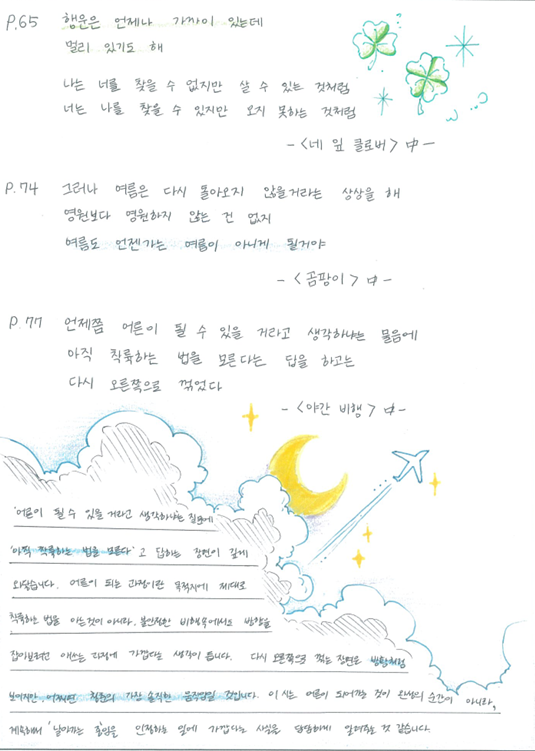 P.65 행운은 언제나 가까이 있는데
멀리 있기도 해
나는 너를 찾을 수 없지만 살 수 있는 것처럼
너는 나를 찾을 수 있지만 오지 못하는 것처럼
-<네 잎 클로버> 中-
P.74 그러나 여름은 다시 돌아오지 않을거라는 상상을 해
영원보다 영원하지 않는 건 없지
여름도 언젠가는 여름이 아니게 될거야
-<곰팡이> 中-
P.77 언제쯤 어른이 될 수 있을 거라고 생각하냐는 물음에
아직 착륙하는 법을 모른다는 답을 하고는
다시 오른쪽으로 꺾었다
-<야간 비행> 中-
'어른이 될 수 있을 거라고 생각하냐는 질문에
'아직 착륙하는 법을 모른다'고 답하는 장면이 깊게
와닿습니다. 어른이 되는 과정이란 목적지에 제대로
착륙하는 법을 아는것이 아니라, 불안정한 비행속에서도 방향을
잡아보려던 애쓰는 과정에 가깝다는 생각이 듭니다. 다시 오른쪽으로 꺾는 장면은 방황처럼
보이지만, 어쩌면 청춘의 가장 솔직한 움직임일 것입니다. 이 시는 어른이 되어가는 것이 완성의 순간이 아니라,
계속해서 '날아가는 중'임을 인정하는 일에 가깝다는 사실을 담담하게 알려주는 것 같습니다.